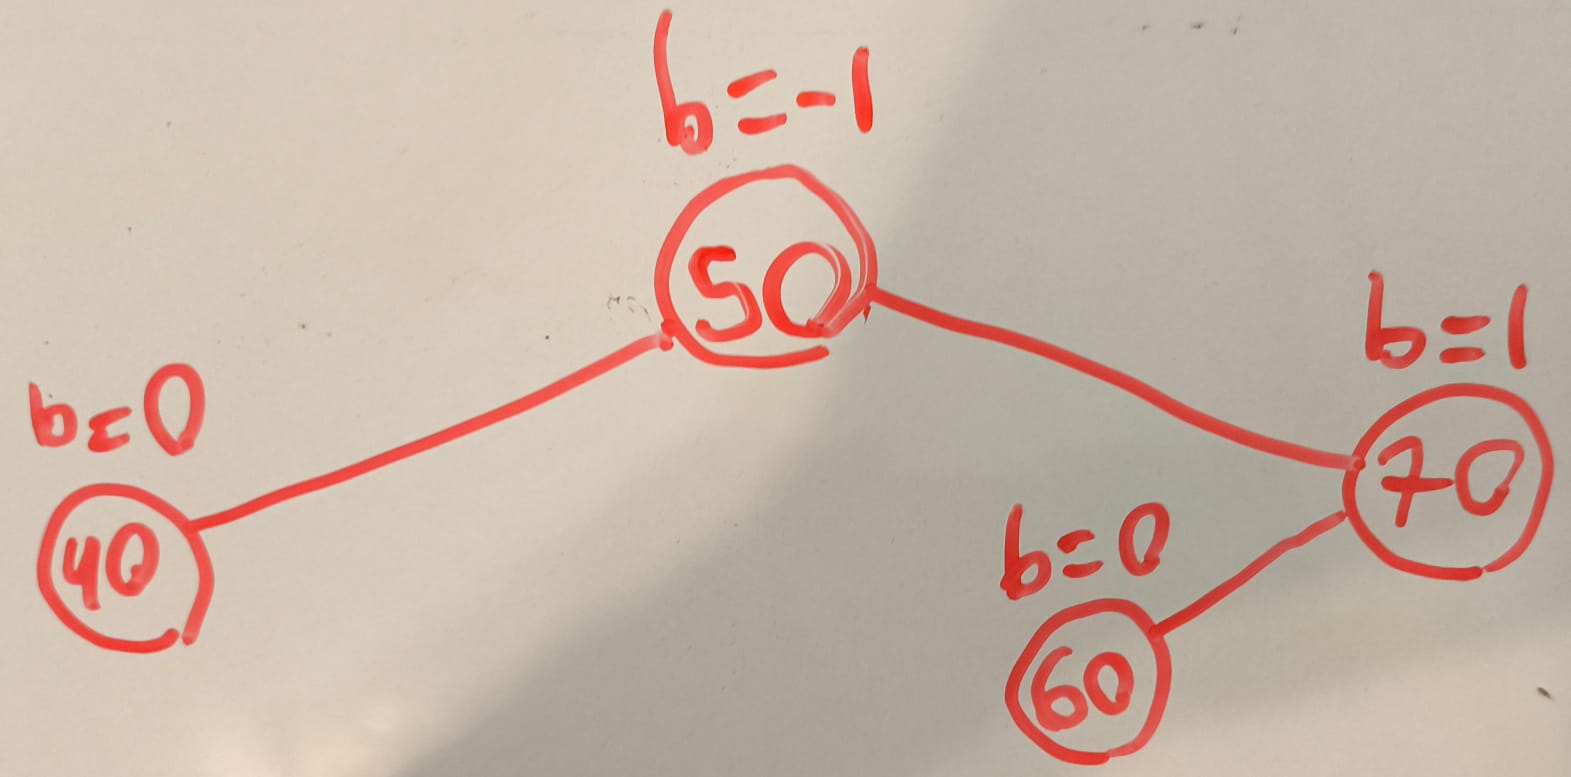 b=-1
50
b=0
40
b=1
70
b=0
60